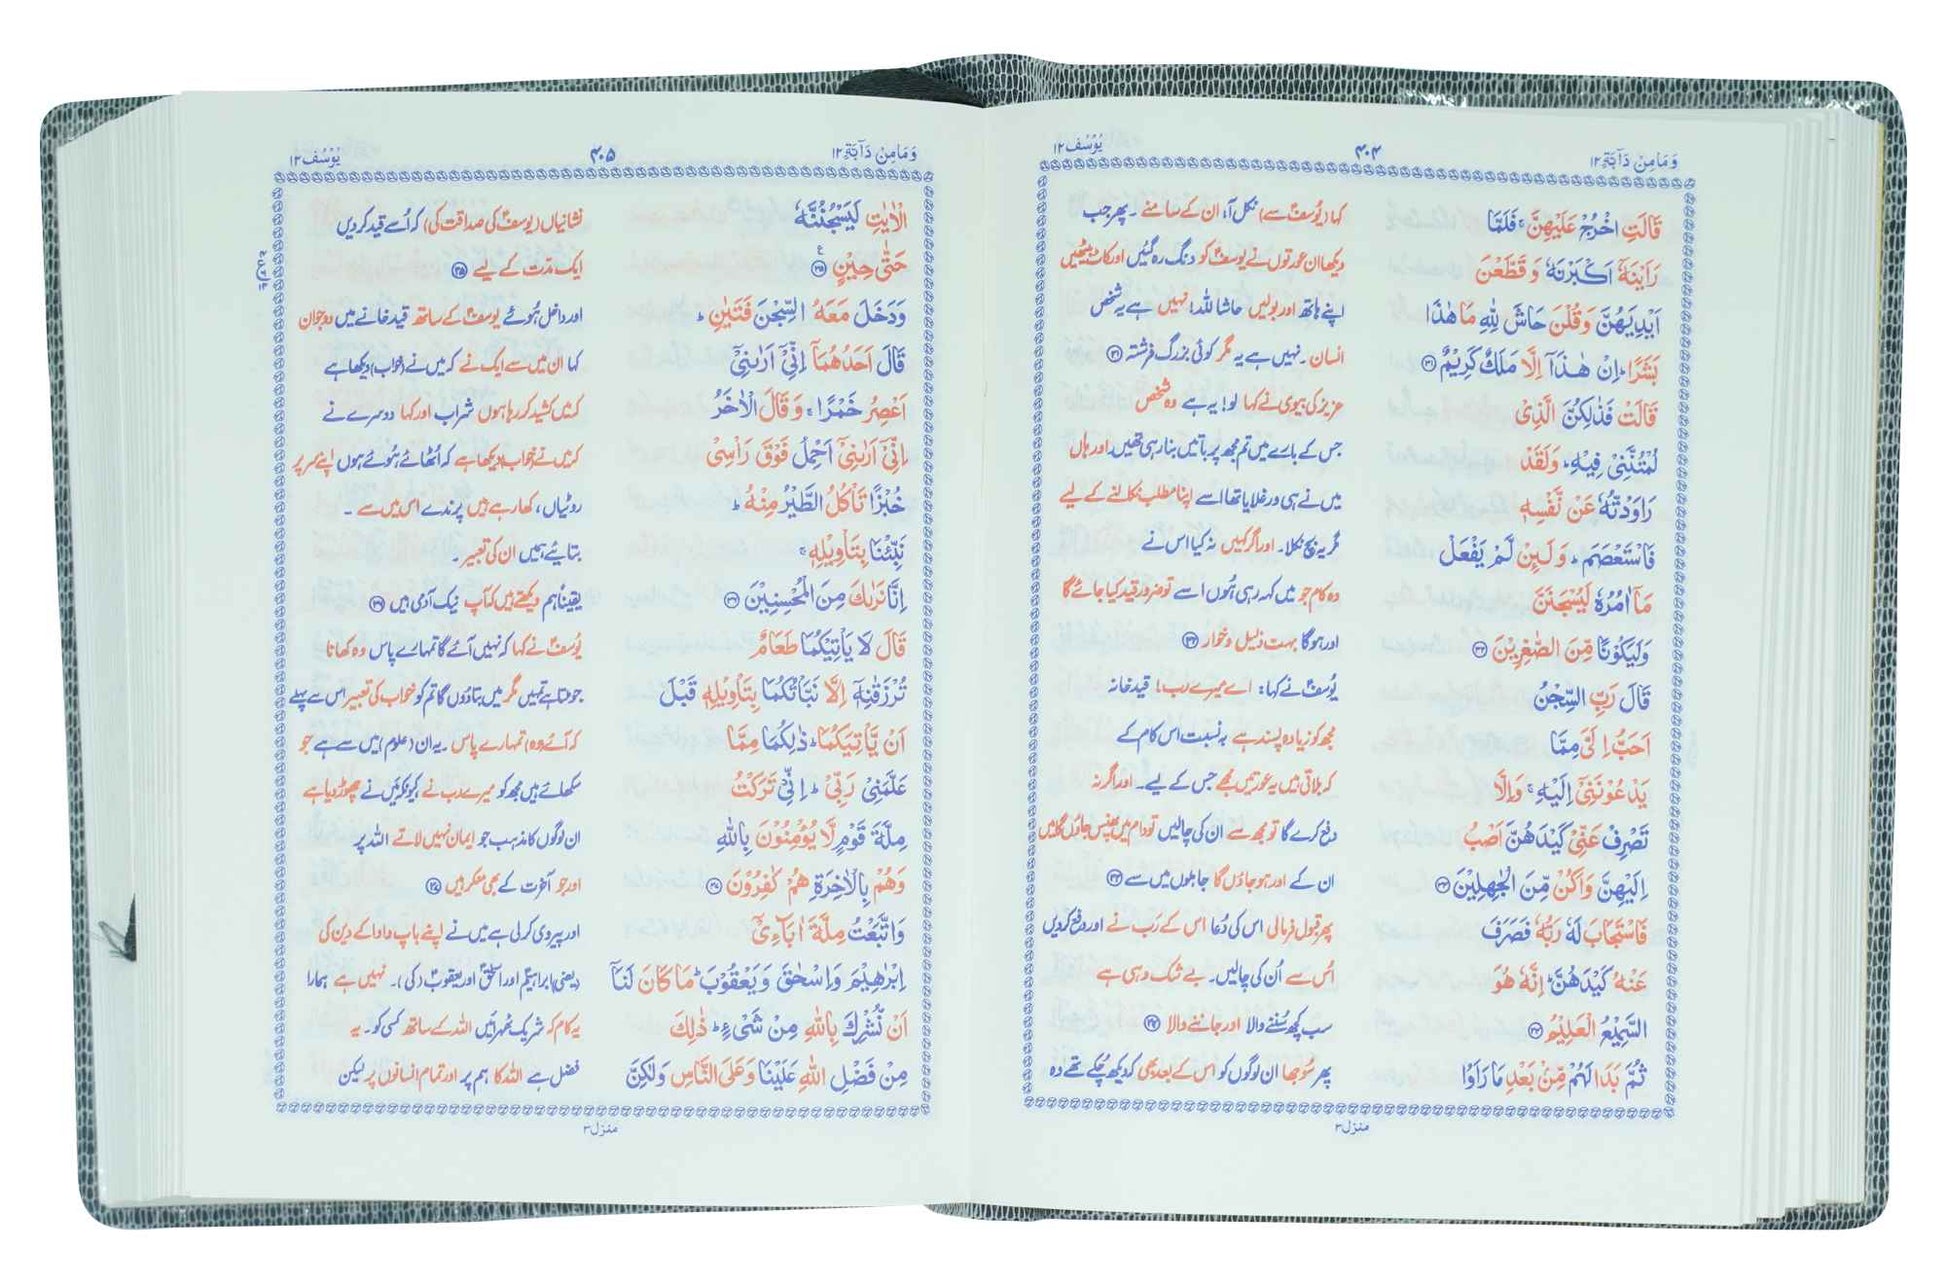 وَمَا مِنْ دَآبَّةٍ ۱۲
۴۰۴
يُوْسُف ۱۲
قَالَتِ اخْرُجْ عَلَيْهِنَّ ۚ فَلَمَّا
کہا (یُوسفؑ سے) نکل آ، ان کے سامنے ۔ پھر جب
رَاَيْنَهٗۤ اَكْبَرْنَهٗ وَ قَطَّعْنَ
دیکھا ان عورتوں نے یوسفؑ کو دنگ رہ گئیں اور کاٹ بیٹھیں
اَيْدِيَهُنَّ وَ قُلْنَ حَاشَ لِلّٰهِ مَا هٰذَا
اپنے ہاتھ اور بولیں حاشا للہ! نہیں ہے یہ شخص
بَشَرًا ؕ اِنْ هٰذَاۤ اِلَّا مَلَكٌ كَرِيْمٌ ۳۱
انسان ۔ نہیں ہے یہ مگر کوئی بزرگ فرشتہ ۳۱
قَالَتْ فَذٰلِكُنَّ الَّذِيْ
عزیز کی بیوی نے کہا لو! یہ ہے وہ شخص
لُمْتُنَّنِيْ فِيْهِ ؕ وَ لَقَدْ
جس کے بارے میں تم مجھ پر باتیں بنا رہی تھیں اور ہاں
رَاوَدْتُّهٗ عَنْ نَّفْسِهٖ
میں نے ہی ورغلایا تھا اسے اپنا مطلب نکالنے کے لیے
فَاسْتَعْصَمَ ؕ وَ لَىِٕنْ لَّمْ يَفْعَلْ
مگر یہ بچ نکلا ۔ اور اگر کہیں نہ کیا اس نے
مَاۤ اٰمُرُهٗ لَيُسْجَنَنَّ
وہ کام جو میں کہہ رہی ہُوں اسے تو ضرور قید کیا جائے گا
وَ لَيَكُوْنًا مِّنَ الصّٰغِرِيْنَ ۳۲
اور ہوگا بہت ذلیل و خوار ۳۲
قَالَ رَبِّ السِّجْنُ
یُوسفؑ نے کہا: اے میرے رب! قید خانہ
اَحَبُّ اِلَيَّ مِمَّا
مجھ کو زیادہ پسند ہے بہ نسبت اس کام کے
يَدْعُوْنَنِيْۤ اِلَيْهِ ۚ وَ اِلَّا
کہ بلاتی ہیں یہ عورتیں مجھے جس کے لیے ۔ اور اگر نہ
تَصْرِفْ عَنِّيْ كَيْدَهُنَّ اَصْبُ
دفع کرے گا تو مجھ سے ان کی چالیں تو دام میں پھنس جاؤں گا میں
اِلَيْهِنَّ وَ اَكُنْ مِّنَ الْجٰهِلِيْنَ ۳۳
ان کے اور ہو جاؤں گا جاہلوں میں سے ۳۳
فَاسْتَجَابَ لَهٗ رَبُّهٗ فَصَرَفَ
پھر قبول فرمالی اس کی دُعا اس کے رَب نے اور دفع کر دیں
عَنْهُ كَيْدَهُنَّ ؕ اِنَّهٗ هُوَ
اُس سے اُن کی چالیں ۔ بے شک وہی ہے
السَّمِيْعُ الْعَلِيْمُ ۳۴
سب کچھ سُننے والا اور جاننے والا ۳۴
ثُمَّ بَدَا لَهُمْ مِّنْۢ بَعْدِ مَا رَاَوُا
پھر سُوجھا ان لوگوں کو اس کے بعد بھی کہ دیکھ چکے تھے وہ
منزل ۳
وَمَا مِنْ دَآبَّةٍ ۱۲
۴۰۵
يُوْسُف ۱۲
الْاٰيٰتِ لَيَسْجُنُنَّهٗ
نشانیاں (یوسفؑ کی صداقت کی) کہ اُسے قید کر دیں
حَتّٰى حِيْنٍ ۳۵
ایک مدّت کے لیے ۳۵
وَ دَخَلَ مَعَهُ السِّجْنَ فَتَيٰنِ ؕ
اور داخل ہُوئے یوسفؑ کے ساتھ قید خانے میں دو جوان
قَالَ اَحَدُهُمَاۤ اِنِّيْۤ اَرٰىنِيْۤ
کہا ان میں سے ایک نے کہ میں نے (خواب) دیکھا ہے
اَعْصِرُ خَمْرًا ۚ وَ قَالَ الْاٰخَرُ
کہ میں کشید کر رہا ہوں شراب اور کہا دوسرے نے
اِنِّيْۤ اَرٰىنِيْۤ اَحْمِلُ فَوْقَ رَاْسِيْ
کہ میں نے خواب دیکھا ہے کہ اُٹھائے ہُوئے ہوں اپنے سر پر
خُبْزًا تَاْكُلُ الطَّيْرُ مِنْهُ ؕ
روٹیاں، کھا رہے ہیں پرندے اس میں سے ۔
نَبِّئْنَا بِتَاْوِيْلِهٖ ۚ
بتائیے ہمیں ان کی تعبیر ۔
اِنَّا نَرٰىكَ مِنَ الْمُحْسِنِيْنَ ۳۶
یقیناً ہم دیکھتے ہیں کہ آپ نیک آدمی ہیں ۳۶
قَالَ لَا يَاْتِيْكُمَا طَعَامٌ
یُوسفؑ نے کہا کہ نہیں آئے گا تمہارے پاس وہ کھانا
تُرْزَقٰنِهٖۤ اِلَّا نَبَّاْتُكُمَا بِتَاْوِيْلِهٖ قَبْلَ
جو ملتا ہے تمہیں مگر میں بتا دُوں گا تم کو خواب کی تعبیر اس سے پہلے
اَنْ يَّاْتِيَكُمَا ؕ ذٰلِكُمَا مِمَّا
کہ آئے (وہ) تمہارے پاس ۔ یہ ان (علوم) میں سے ہے جو
عَلَّمَنِيْ رَبِّيْ ؕ اِنِّيْ تَرَكْتُ
سکھائے ہیں مجھ کو میرے رب نے ۔ کیونکہ میں نے چھوڑ دیا ہے
مِلَّةَ قَوْمٍ لَّا يُؤْمِنُوْنَ بِاللّٰهِ
ان لوگوں کا مذہب جو ایمان نہیں لاتے اللہ پر
وَ هُمْ بِالْاٰخِرَةِ هُمْ كٰفِرُوْنَ ۳۷
اور جو آخرت کے بھی منکر ہیں ۳۷
وَ اتَّبَعْتُ مِلَّةَ اٰبَآءِيْۤ
اور پیروی کر لی ہے میں نے اپنے باپ دادا کے دین کی
اِبْرٰهِيْمَ وَ اِسْحٰقَ وَ يَعْقُوْبَ ؕ مَا كَانَ لَنَاۤ
(یعنی) ابراہیمؑ اور اسحٰقؑ اور یعقوبؑ (کی) ۔ نہیں ہے ہمارا
اَنْ نُّشْرِكَ بِاللّٰهِ مِنْ شَيْءٍ ؕ ذٰلِكَ
یہ کام کہ شریک ٹھہرائیں اللہ کے ساتھ کسی کو ۔ یہ
مِنْ فَضْلِ اللّٰهِ عَلَيْنَا وَ عَلَى النَّاسِ وَ لٰكِنَّ
فضل ہے اللہ کا ہم پر اور تمام انسانوں پر لیکن
منزل ۳